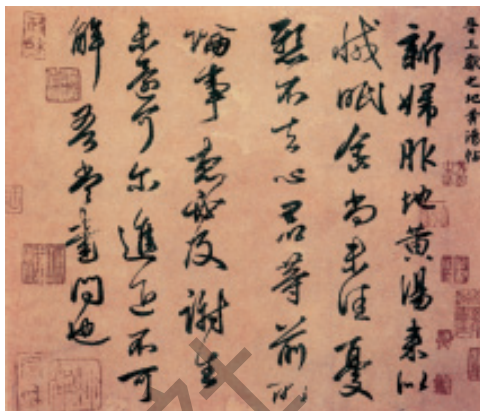 晉王獻之地黄湯帖
新婦服地黄湯來似
減眠食尚未佳憂
懸不去心君等前所
論事想必及謝生
未還可尔進退不可
解吾當書問也